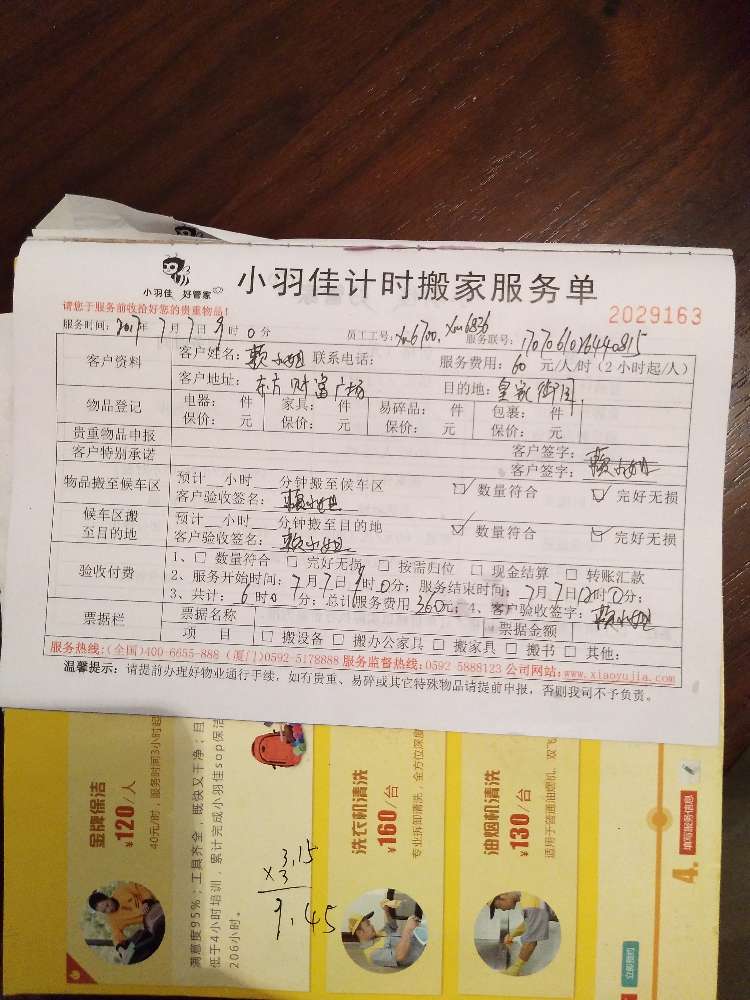 小羽佳 好管家
小羽佳计时搬家服务单
2029163
请您于服务前收拾好您的贵重物品!
服务时间:2017年7月7日9时0分 员工工号:xm6700、xm6836 服务联号:
客户资料
客户姓名:赖小姐 联系电话: 服务费用:60元/人/时(2小时起/人)
客户地址:东方财富广场 目的地:皇家御园
物品登记
电器: 件 家具: 件 易碎品: 件 包裹: 件
保价: 元 保价: 元 保价: 元 保价: 元
贵重物品申报
客户签字:赖小姐
客户特别承诺
客户签字:赖小姐
物品搬至候车区
预计__小时__分钟搬至候车区 数量符合 完好无损
客户验收签名:赖小姐
候车区搬至目的地
预计__小时__分钟搬至目的地 数量符合 完好无损
客户验收签名:赖小姐
验收付费
1、□ 数量符合 □ 完好无损 □ 按需归位 □ 现金结算 □ 转账汇款
2、服务开始时间:7月7日9时0分;服务结束时间:7月7日12时0分;
3、共计:6时0分;总计服务费用360元;4、客户验收签字:赖小姐
票据栏
票据名称 票据金额
项 目 □ 搬设备 □ 搬办公家具 □ 搬家具 □ 搬书 □ 其他:
服务热线:(全国)400-6655-888 (厦门)0592-5178888 服务监督热线:0592 5888123 公司网站:www.xiaoyujia.com
温馨提示:请提前办理好物业通行手续,如有贵重、易碎或其它特殊物品请提前申报,否则我司不予负责。
金牌保洁
¥120/人
40元/时,服务时间3小时起
满意度95%;工具齐全,既快又干净;且
低于4小时培训,累计完成小羽佳sop保洁
206小时。
3.15
×3
9.45
洗衣机清洗
¥160/台
专业拆卸清洗,全方位深度
油烟机清洗
¥130/台
适用于普通油烟机、双飞
4.
填写服务信息
立即预约